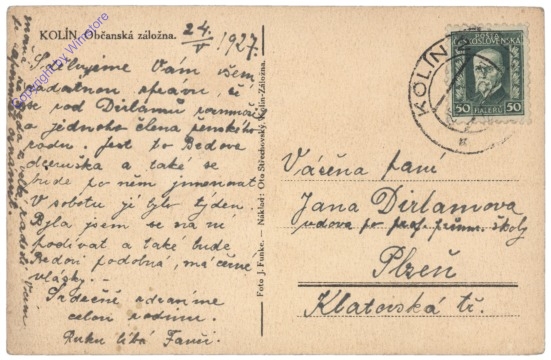 KOLÍN. Občanská záložna.
24./V 1927.
Sdělujeme Vám všem
radostnou zprávu, že
se rod Dirlamů rozmnožil
o jednoho člena ženského
rodu. Jest po Bedove
děvuška a také se
bude po něm jmenovat
V sobotu již tylo týden.
Byla jsem se na ni
podívat a také bude
Bedovi podobná, má černé
vlásky. –
Srdečně zdravíme
celou rodinu.
Ruku líbá Fanči.
Foto J. Funke. — Náklad: Ota Střechovský, Kolín-Záložna.
POŠTA
ČESKOSLOVENSKÁ
50 HALÉŘŮ 50
KOLÍN
Vážená paní
Jana Dirlamova
vdova po prof. prům. školy
Plzeň
Klatovská tř.
Copyright by Winstore